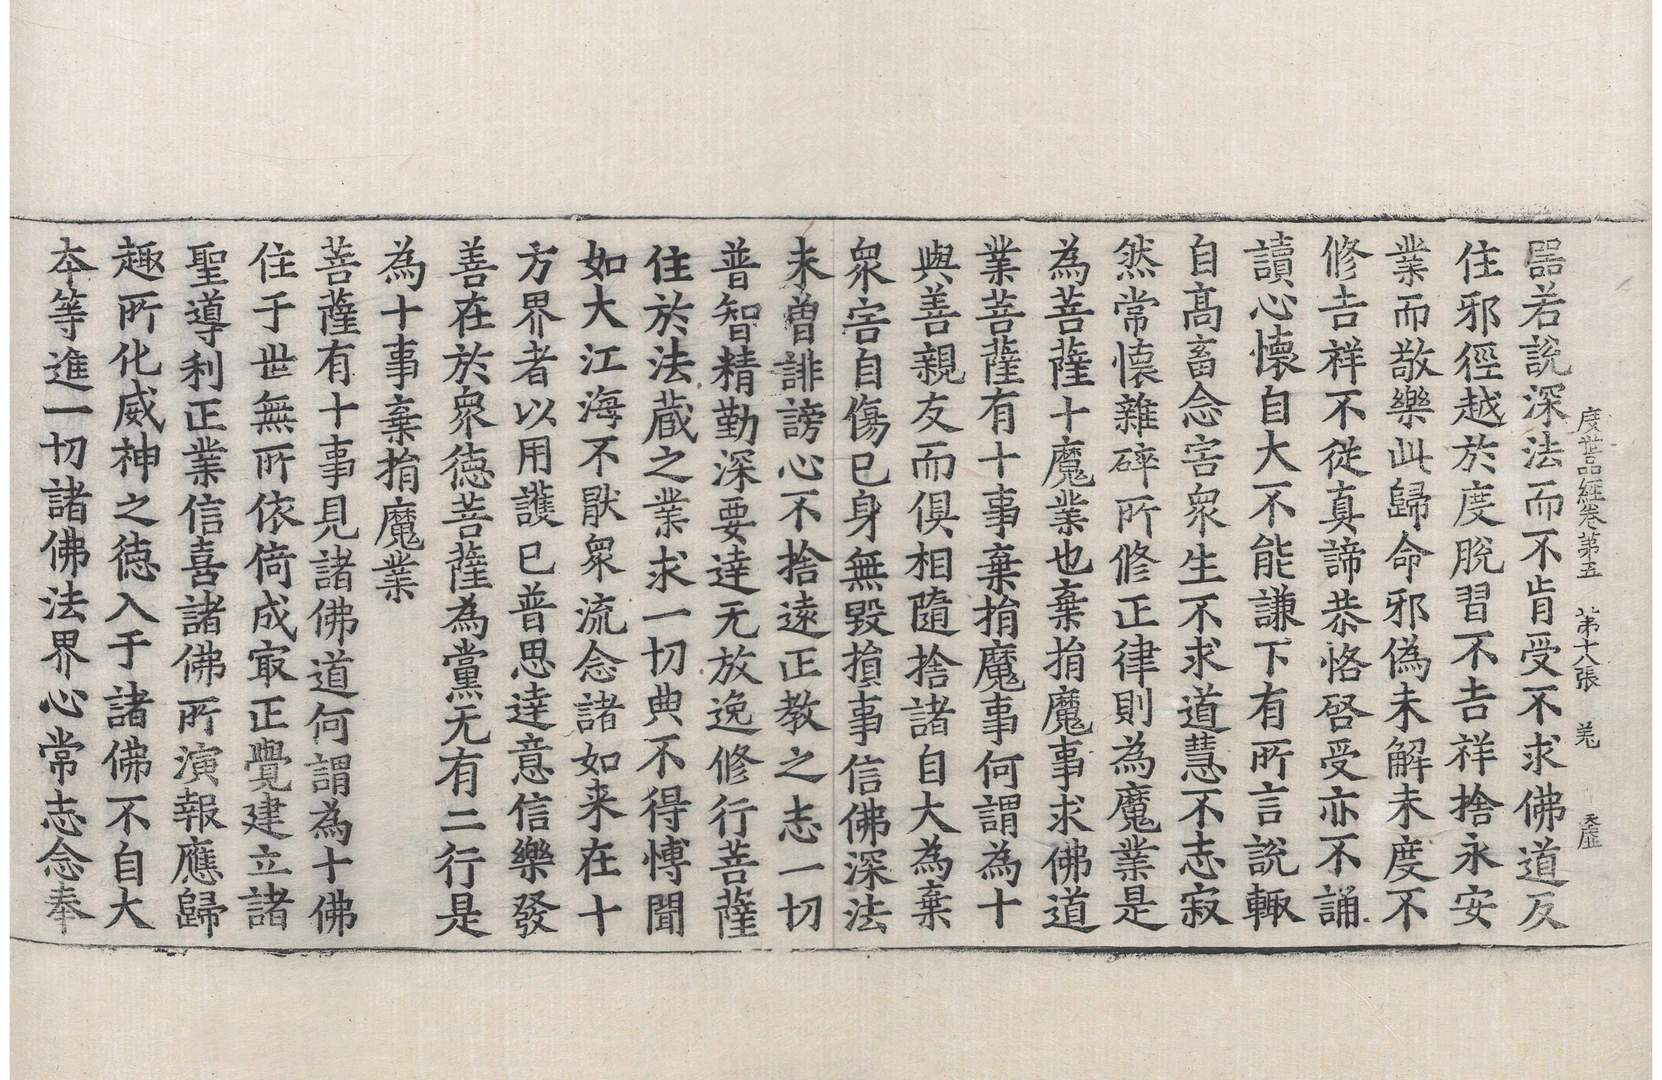 度世品經卷第五 第十八張 羗
器若說深法而不肯受不求佛道反
住邪徑越於度脫習不吉祥捨永安
業而敬樂此歸命邪偽未解未度不
修吉祥不從真諦恭恪啓受亦不誦
讀心懷自大不能謙下有所言說輙
自高畜念害衆生不求道慧不志寂
然常懷雜碎所修正律則為魔業是
為菩薩十魔業也棄捐魔事求佛道
業菩薩有十事棄捐魔事何謂為十
與善親友而俱相隨捨諸自大為棄
衆害自傷已身無毀損事信佛深法
未曾誹謗心不捨遠正教之志一切
普智精勤深要達无放逸修行菩薩
住於法藏之業求一切典不得愽聞
如大江海不猒衆流念諸如来在十
方界者以用護已普思達意信樂發
善在於衆德菩薩為黨无有二行是
為十事棄捐魔業
菩薩有十事見諸佛道何謂為十佛
住于世無所依倚成㝡正覺建立諸
聖導利正業信喜諸佛所演報應歸
趣所化威神之徳入于諸佛不自大
本等進一切諸佛法界心常志念奉